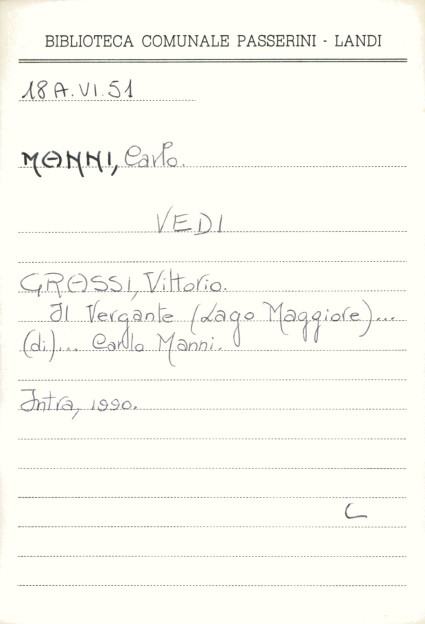 BIBLIOTECA COMUNALE PASSERINI - LANDI
18A.VI.51
MANNI, Carlo.
VEDI
GROSSI, Vittorio.
Il Vergante (Lago Maggiore)...
(di)... Carlo Manni.
Intra, 1990.
C